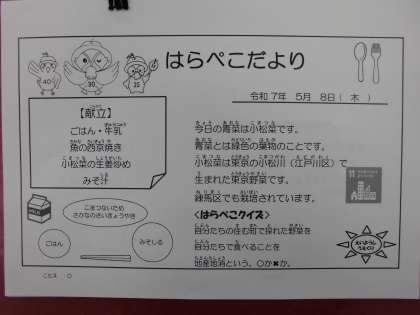 はらぺこだより
40
30
25
令和7年 5月 8日（木）
【献立】
ごはん・牛乳
魚の西京焼き
小松菜の生姜炒め
みそ汁
今日の青菜は小松菜です。
青菜とは緑色の葉物のことです。
小松菜は東京の小松川（江戸川区）で
生まれた東京野菜です。
練馬区でも栽培されています。
11
<はらぺこクイズ>
自分たちの住む町で採れた野菜を
自分たちで食べることを
地産地消という。〇か✖か。
こまつないため
さかなのさいきょうやき
ごはん
みそしる
こたえ：〇